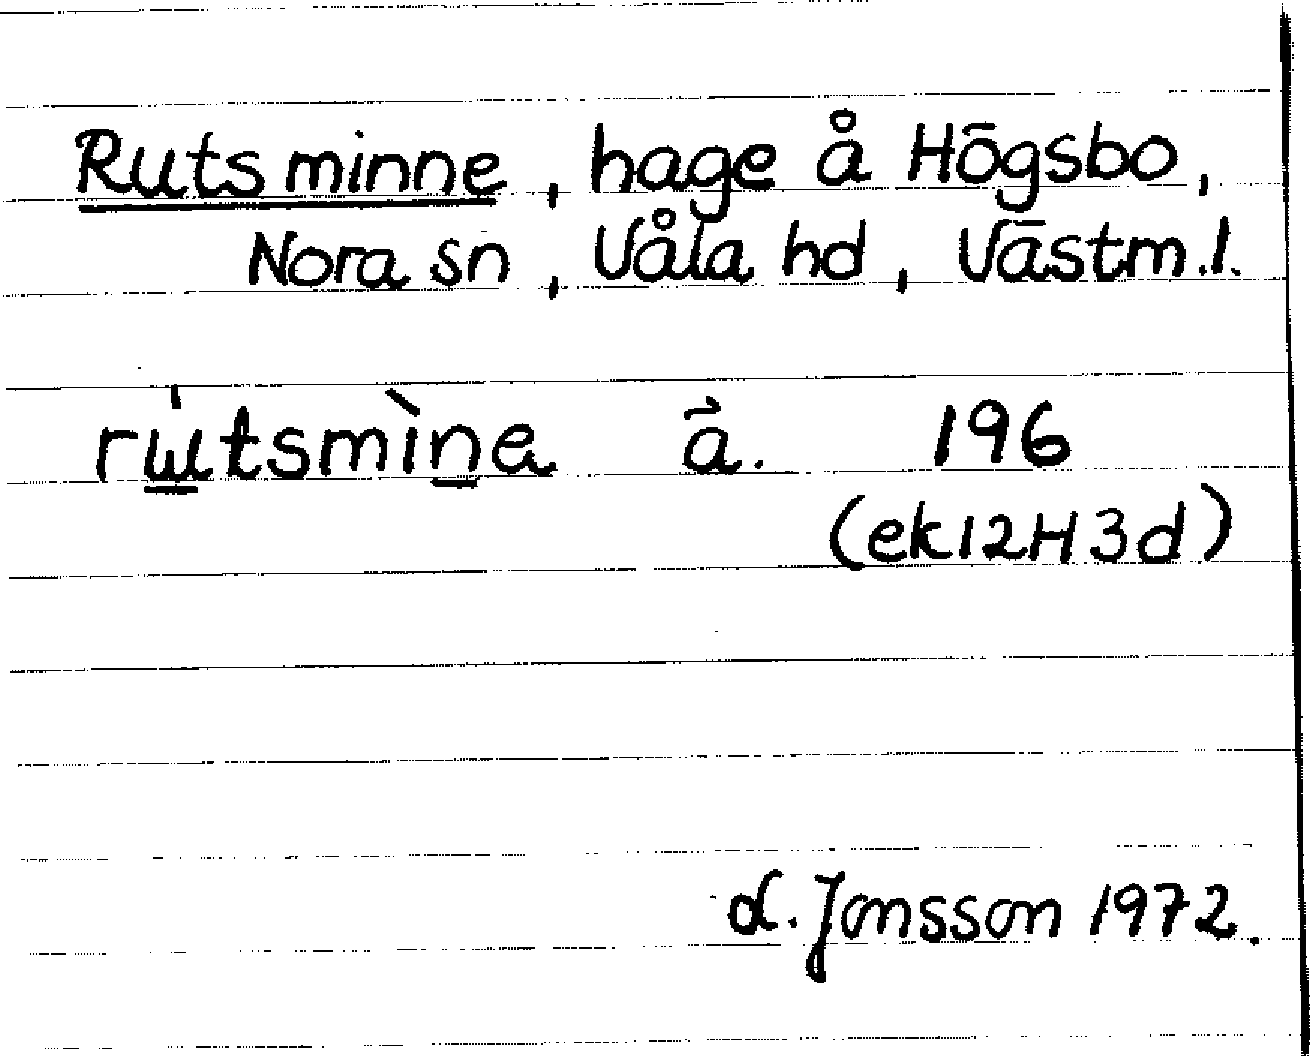 Ruts minne, hage å Högsbo,
Nora sn, Våla hd, Västm. l.
rɯ̍tsmìna å. 196
(ek 12H3d)
L. Jonsson 1972.